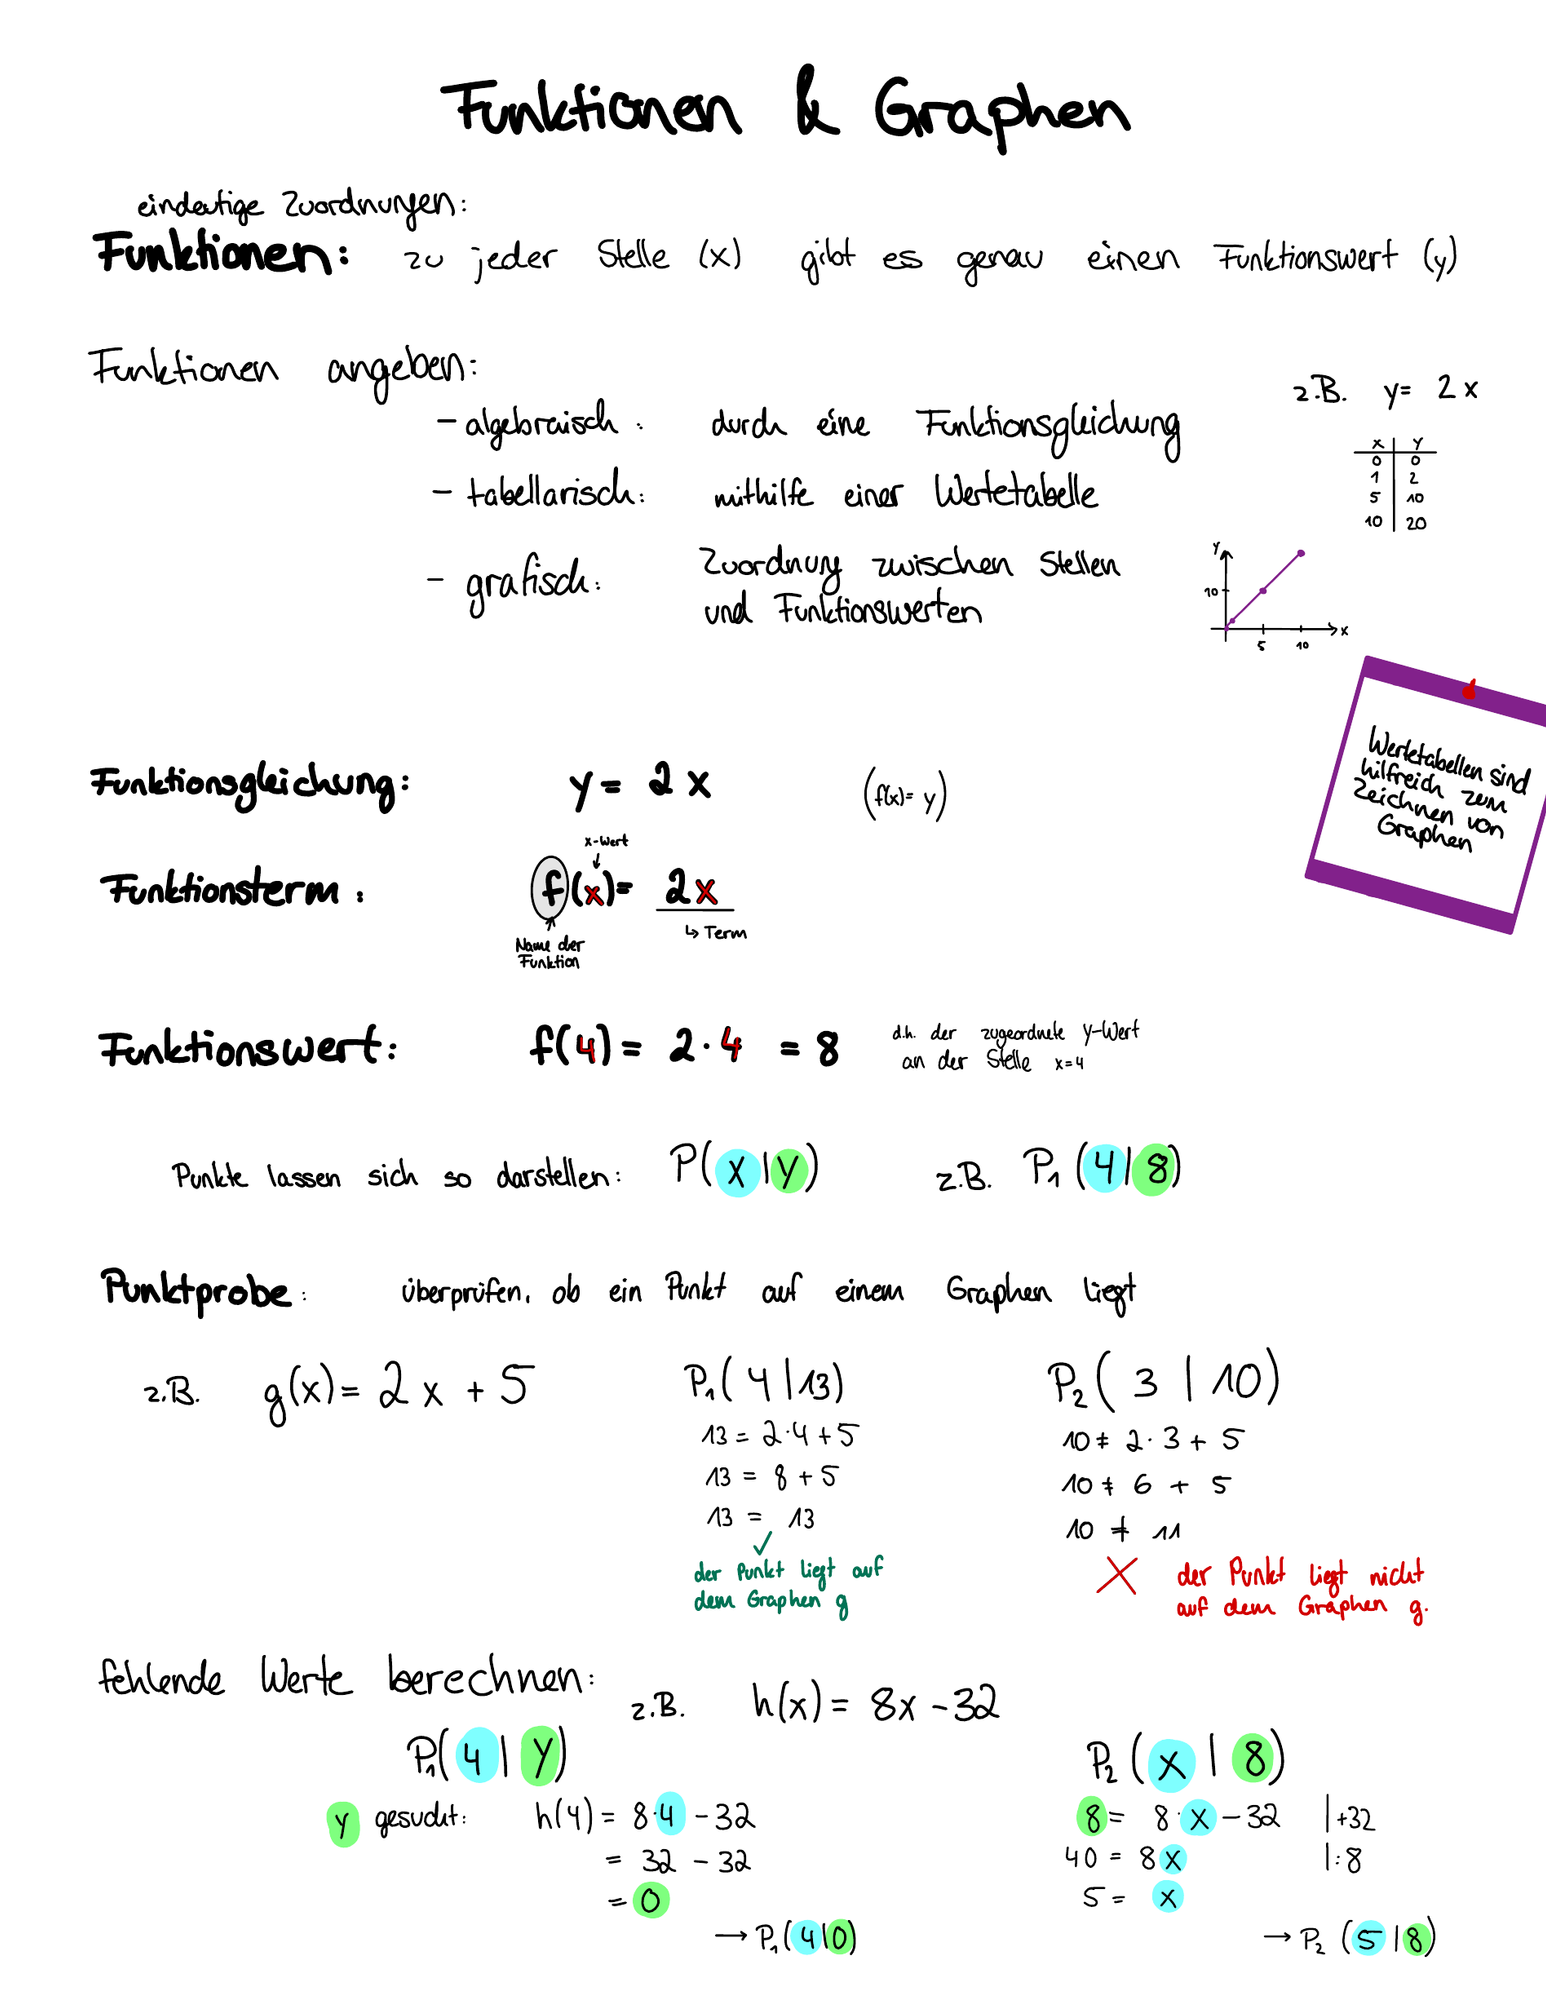 Funktionen & Graphen
eindeutige Zuordnungen:
Funktionen: zu jeder Stelle (x) gibt es genau einen Funktionswert (y)
Funktionen angeben:
z.B. y= 2x
- algebraisch: durch eine Funktionsgleichung
- tabellarisch: mithilfe einer Wertetabelle
x | y
0 | 0
1 | 2
5 | 10
10 | 20
- grafisch: Zuordnung zwischen Stellen
und Funktionswerten
y
10
5 10 x
Wertetabellen sind
hilfreich zum
Zeichnen von
Graphen
Funktionsgleichung: y = 2x (f(x)= y)
x-Wert
Funktionsterm: f(x)= 2x
↳ Term
Name der
Funktion
Funktionswert: f(4) = 2·4 = 8
d.h. der zugeordnete y-Wert
an der Stelle x=4
Punkte lassen sich so darstellen: P(x|y) z.B. P₁(4|8)
Punktprobe: überprüfen, ob ein Punkt auf einem Graphen liegt
z.B. g(x) = 2x + 5
P₁(4|13)
13 = 2·4+5
13 = 8+5
13 = 13
✓
der Punkt liegt auf
dem Graphen g
P₂(3|10)
10 ≠ 2·3+5
10 ≠ 6 + 5
10 ≠ 11
der Punkt liegt nicht
auf dem Graphen g.
fehlende Werte berechnen:
z.B. h(x) = 8x -32
P₁(4|y)
y gesucht: h(4) = 8·4 -32
= 32 -32
= 0
→ P₁(4|0)
P₂(x|8)
8 = 8·x -32 |+32
40 = 8x |:8
5 = x
→ P₂(5|8)